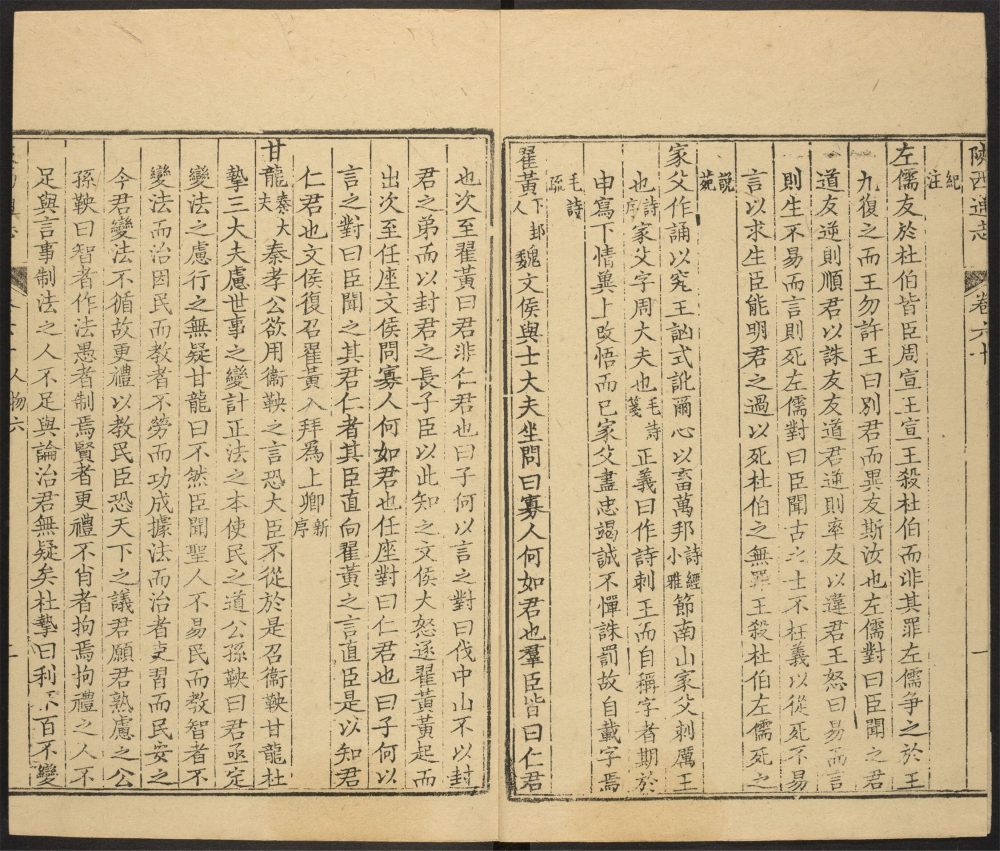 陝西通志 卷六十 一
紀注
左儒友於杜伯皆臣周宣王宣王殺杜伯而非其罪左儒爭之於王
九復之而王勿許王曰別君而異友斯汝也左儒對曰臣聞之君
道友逆則順君以誅友友道君逆則率友以違君王怒曰易而言
則生不易而言則死左儒對曰臣聞古之士不枉義以從死不易
言以求生臣能明君之過以死杜伯之無罪王殺杜伯左儒死之
說苑
家父作誦以究王訩式訛爾心以畜萬邦詩經小雅節南山家父刺厲王
也詩序家父字周大夫也毛詩箋正義曰作詩刺王而自稱字者期於
申寫下情冀上改悟而已家父盡忠竭誠不憚誅罰故自載字焉
毛詩疏
翟黃下邽人魏文侯與士大夫坐問曰寡人何如君也羣臣皆曰仁君
也次至翟黃曰君非仁君也曰子何以言之對曰伐中山不以封
君之弟而以封君之長子臣以此知之文侯大怒逐翟黃黃起而
出次至任座文侯問寡人何如君也任座對曰仁君也曰子何以
言之對曰臣聞之其君仁者其臣直向翟黃之言直臣是以知君
仁君也文侯復召翟黃入拜爲上卿新序
甘龍秦大夫秦孝公欲用衞鞅之言恐大臣不從於是召衞鞅甘龍杜
摯三大夫慮世事之變計正法之本使民之道公孫鞅曰君亟定
變法之慮行之無疑甘龍曰不然臣聞聖人不易民而教智者不
變法而治因民而教者不勞而功成據法而治者吏習而民安之
今君變法不循故更禮以教民臣恐天下之議君願君熟慮之公
孫鞅曰智者作法愚者制焉賢者更禮不肖者拘焉拘禮之人不
足與言事制法之人不足與論治君無疑矣杜摯曰利不百不變
人物六